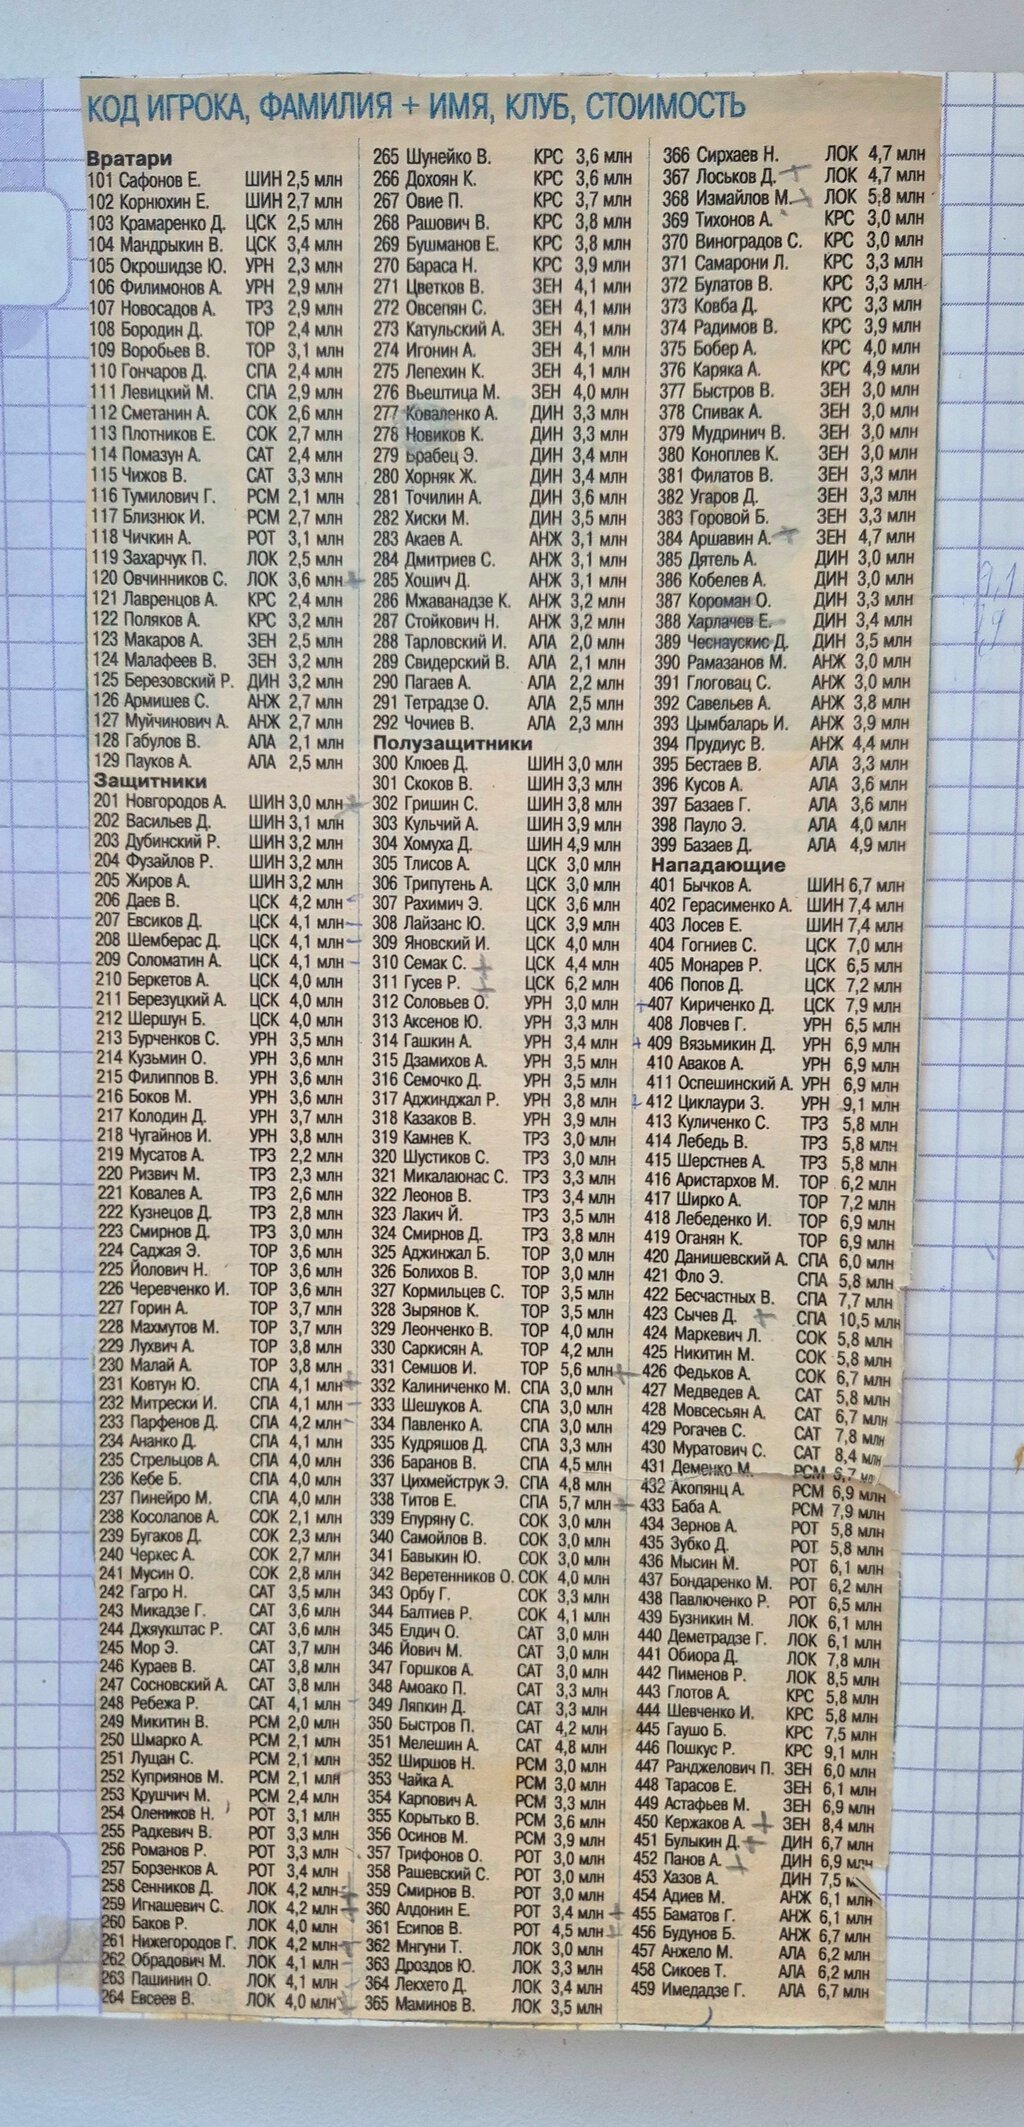 КОД ИГРОКА, ФАМИЛИЯ + ИМЯ, КЛУБ, СТОИМОСТЬ
Вратари
101 Сафонов Е. ШИН 2,5 млн
102 Корнюхин Е. ШИН 2,7 млн
103 Крамаренко Д. ЦСК 2,5 млн
104 Мандрыкин В. ЦСК 3,4 млн
105 Окрошидзе Ю. УРН 2,3 млн
106 Филимонов А. УРН 2,9 млн
107 Новосадов А. ТРЗ 2,9 млн
108 Бородин Д. ТОР 2,4 млн
109 Воробьев В. ТОР 3,1 млн
110 Гончаров Д. СПА 2,4 млн
111 Левицкий М. СПА 2,9 млн
112 Сметанин А. СОК 2,6 млн
113 Плотников Е. СОК 2,7 млн
114 Помазун А. САТ 2,4 млн
115 Чижов В. САТ 3,3 млн
116 Тумилович Г. РСМ 2,1 млн
117 Близнюк И. РСМ 2,7 млн
118 Чичкин А. РОТ 3,1 млн
119 Захарчук П. ЛОК 2,5 млн
120 Овчинников С. ЛОК 3,6 млн
121 Лавренцов А. КРС 2,4 млн
122 Поляков А. КРС 3,2 млн
123 Макаров А. ЗЕН 2,5 млн
124 Малафеев В. ЗЕН 3,2 млн
125 Березовский Р. ДИН 3,2 млн
126 Армишев С. АНЖ 2,7 млн
127 Муйчинович А. АНЖ 2,7 млн
128 Габулов В. АЛА 2,1 млн
129 Пауков А. АЛА 2,5 млн
Защитники
201 Новгородов А. ШИН 3,0 млн
202 Васильев Д. ШИН 3,1 млн
203 Дубинский Р. ШИН 3,2 млн
204 Фузайлов Р. ШИН 3,2 млн
205 Жиров А. ШИН 3,2 млн
206 Даев В. ЦСК 4,2 млн
207 Евсиков Д. ЦСК 4,1 млн
208 Шемберас Д. ЦСК 4,1 млн
209 Соломатин А. ЦСК 4,1 млн
210 Беркетов А. ЦСК 4,0 млн
211 Березуцкий А. ЦСК 4,0 млн
212 Шершун Б. ЦСК 4,0 млн
213 Бурченков С. УРН 3,5 млн
214 Кузьмин О. УРН 3,6 млн
215 Филиппов В. УРН 3,6 млн
216 Боков М. УРН 3,6 млн
217 Колодин Д. УРН 3,7 млн
218 Чугайнов И. УРН 3,8 млн
219 Мусатов А. ТРЗ 2,2 млн
220 Ризвич М. ТРЗ 2,3 млн
221 Ковалев А. ТРЗ 2,6 млн
222 Кузнецов Д. ТРЗ 2,8 млн
223 Смирнов Д. ТРЗ 3,0 млн
224 Саджая Э. ТОР 3,6 млн
225 Йолович Н. ТОР 3,6 млн
226 Черевченко И. ТОР 3,6 млн
227 Горин А. ТОР 3,7 млн
228 Махмутов М. ТОР 3,7 млн
229 Лухвич А. ТОР 3,8 млн
230 Малай А. ТОР 3,8 млн
231 Ковтун Ю. СПА 4,1 млн
232 Митрески И. СПА 4,1 млн
233 Парфенов Д. СПА 4,2 млн
234 Ананко Д. СПА 4,1 млн
235 Стрельцов А. СПА 4,0 млн
236 Кебе Б. СПА 4,0 млн
237 Пинейро М. СПА 4,0 млн
238 Косолапов А. СОК 2,1 млн
239 Бугаков Д. СОК 2,3 млн
240 Черкес А. СОК 2,7 млн
241 Мусин О. СОК 2,8 млн
242 Гагро Н. САТ 3,5 млн
243 Микадзе Г. САТ 3,6 млн
244 Джяукштас Р. САТ 3,6 млн
245 Мор Э. САТ 3,7 млн
246 Кураев В. САТ 3,8 млн
247 Сосновский А. САТ 3,8 млн
248 Ребежа Р. САТ 4,1 млн
249 Микитин В. РСМ 2,0 млн
250 Шмарко А. РСМ 2,1 млн
251 Лущан С. РСМ 2,1 млн
252 Куприянов М. РСМ 2,1 млн
253 Крушчич М. РСМ 2,4 млн
254 Олеников Н. РОТ 3,1 млн
255 Радкевич В. РОТ 3,3 млн
256 Романов Р. РОТ 3,3 млн
257 Борзенков А. РОТ 3,4 млн
258 Сенников Д. ЛОК 4,2 млн
259 Игнашевич С. ЛОК 4,2 млн
260 Баков Р. ЛОК 4,0 млн
261 Нижегородов Г. ЛОК 4,2 млн
262 Обрадович М. ЛОК 4,1 млн
263 Пашинин О. ЛОК 4,1 млн
264 Евсеев В. ЛОК 4,0 млн
265 Шунейко В. КРС 3,6 млн
266 Дохоян К. КРС 3,6 млн
267 Овие П. КРС 3,7 млн
268 Рашович В. КРС 3,8 млн
269 Бушманов Е. КРС 3,8 млн
270 Бараса Н. КРС 3,9 млн
271 Цветков В. ЗЕН 4,1 млн
272 Овсепян С. ЗЕН 4,1 млн
273 Катульский А. ЗЕН 4,1 млн
274 Игонин А. ЗЕН 4,1 млн
275 Лепехин К. ЗЕН 4,1 млн
276 Вьештица М. ЗЕН 4,0 млн
277 Коваленко А. ДИН 3,3 млн
278 Новиков К. ДИН 3,3 млн
279 Брабец Э. ДИН 3,4 млн
280 Хорняк Ж. ДИН 3,4 млн
281 Точилин А. ДИН 3,6 млн
282 Хиски М. ДИН 3,5 млн
283 Акаев А. АНЖ 3,1 млн
284 Дмитриев С. АНЖ 3,1 млн
285 Хошич Д. АНЖ 3,1 млн
286 Мжаванадзе К. АНЖ 3,2 млн
287 Стойкович Н. АНЖ 3,2 млн
288 Тарловский И. АЛА 2,0 млн
289 Свидерский В. АЛА 2,1 млн
290 Пагаев А. АЛА 2,2 млн
291 Тетрадзе О. АЛА 2,5 млн
292 Чочиев В. АЛА 2,3 млн
Полузащитники
300 Клюев Д. ШИН 3,0 млн
301 Скоков В. ШИН 3,3 млн
302 Гришин С. ШИН 3,8 млн
303 Кульчий А. ШИН 3,9 млн
304 Хомуха Д. ШИН 4,9 млн
305 Тлисов А. ЦСК 3,0 млн
306 Трипутень А. ЦСК 3,0 млн
307 Рахимич Э. ЦСК 3,6 млн
308 Лайзанс Ю. ЦСК 3,9 млн
309 Яновский И. ЦСК 4,0 млн
310 Семак С. ЦСК 4,4 млн
311 Гусев Р. ЦСК 6,2 млн
312 Соловьев О. УРН 3,0 млн
313 Аксенов Ю. УРН 3,3 млн
314 Гашкин А. УРН 3,4 млн
315 Дзамихов А. УРН 3,5 млн
316 Семочко Д. УРН 3,5 млн
317 Аджинджал Р. УРН 3,8 млн
318 Казаков В. УРН 3,9 млн
319 Камнев К. ТРЗ 3,0 млн
320 Шустиков С. ТРЗ 3,0 млн
321 Микалаюнас С. ТРЗ 3,3 млн
322 Леонов В. ТРЗ 3,4 млн
323 Лакич Й. ТРЗ 3,5 млн
324 Смирнов Д. ТРЗ 3,8 млн
325 Аджинжал Б. ТОР 3,0 млн
326 Болихов В. ТОР 3,0 млн
327 Кормильцев С. ТОР 3,5 млн
328 Зырянов К. ТОР 3,5 млн
329 Леонченко В. ТОР 4,0 млн
330 Саркисян А. ТОР 4,2 млн
331 Семшов И. ТОР 5,6 млн
332 Калиниченко М. СПА 3,0 млн
333 Шешуков А. СПА 3,0 млн
334 Павленко А. СПА 3,0 млн
335 Кудряшов Д. СПА 3,3 млн
336 Баранов В. СПА 4,5 млн
337 Цихмейструк Э. СПА 4,8 млн
338 Титов Е. СПА 5,7 млн
339 Епуряну С. СОК 3,0 млн
340 Самойлов В. СОК 3,0 млн
341 Бавыкин Ю. СОК 3,0 млн
342 Веретенников О. СОК 4,0 млн
343 Орбу Г. СОК 3,3 млн
344 Балтиев Р. СОК 4,1 млн
345 Елдич О. САТ 3,0 млн
346 Йович М. САТ 3,0 млн
347 Горшков А. САТ 3,0 млн
348 Амоако П. САТ 3,3 млн
349 Ляпкин Д. САТ 3,3 млн
350 Быстров П. САТ 4,2 млн
351 Мелешин А. САТ 4,8 млн
352 Ширшов Н. РСМ 3,0 млн
353 Чайка А. РСМ 3,0 млн
354 Карпович А. РСМ 3,3 млн
355 Корытько В. РСМ 3,6 млн
356 Осинов М. РСМ 3,9 млн
357 Трифонов О. РОТ 3,0 млн
358 Рашевский С. РОТ 3,0 млн
359 Смирнов В. РОТ 3,0 млн
360 Алдонин Е. РОТ 3,4 млн
361 Есипов В. РОТ 4,5 млн
362 Мнгуни Т. ЛОК 3,0 млн
363 Дроздов Ю. ЛОК 3,3 млн
364 Лекхето Д. ЛОК 3,4 млн
365 Маминов В. ЛОК 3,5 млн
366 Сирхаев Н. ЛОК 4,7 млн
367 Лоськов Д. ЛОК 4,7 млн
368 Измайлов М. ЛОК 5,8 млн
369 Тихонов А. КРС 3,0 млн
370 Виноградов С. КРС 3,0 млн
371 Самарони Л. КРС 3,3 млн
372 Булатов В. КРС 3,3 млн
373 Ковба Д. КРС 3,3 млн
374 Радимов В. КРС 3,9 млн
375 Бобер А. КРС 4,0 млн
376 Каряка А. КРС 4,9 млн
377 Быстров В. ЗЕН 3,0 млн
378 Спивак А. ЗЕН 3,0 млн
379 Мудринич В. ЗЕН 3,0 млн
380 Коноплев К. ЗЕН 3,0 млн
381 Филатов В. ЗЕН 3,3 млн
382 Угаров Д. ЗЕН 3,3 млн
383 Горовой Б. ЗЕН 3,3 млн
384 Аршавин А. ЗЕН 4,7 млн
385 Дятель А. ДИН 3,0 млн
386 Кобелев А. ДИН 3,0 млн
387 Короман О. ДИН 3,3 млн
388 Харлачев Е. ДИН 3,4 млн
389 Чеснаускис Д. ДИН 3,5 млн
390 Рамазанов М. АНЖ 3,0 млн
391 Глоговац С. АНЖ 3,0 млн
392 Савельев А. АНЖ 3,8 млн
393 Цымбаларь И. АНЖ 3,9 млн
394 Прудиус В. АНЖ 4,4 млн
395 Бестаев В. АЛА 3,3 млн
396 Кусов А. АЛА 3,6 млн
397 Базаев Г. АЛА 3,6 млн
398 Пауло Э. АЛА 4,0 млн
399 Базаев Д. АЛА 4,9 млн
Нападающие
401 Бычков А. ШИН 6,7 млн
402 Герасименко А. ШИН 7,4 млн
403 Лосев Е. ШИН 7,4 млн
404 Гогниев С. ЦСК 7,0 млн
405 Монарев Р. ЦСК 6,5 млн
406 Попов Д. ЦСК 7,2 млн
407 Кириченко Д. ЦСК 7,9 млн
408 Ловчев Г. УРН 6,5 млн
409 Вязьмикин Д. УРН 6,9 млн
410 Аваков А. УРН 6,9 млн
411 Оспешинский А. УРН 6,9 млн
412 Циклаури З. УРН 9,1 млн
413 Куличенко С. ТРЗ 5,8 млн
414 Лебедь В. ТРЗ 5,8 млн
415 Шерстнев А. ТРЗ 5,8 млн
416 Аристархов М. ТОР 6,2 млн
417 Ширко А. ТОР 7,2 млн
418 Лебеденко И. ТОР 6,9 млн
419 Оганян К. ТОР 6,9 млн
420 Данишевский А. СПА 6,0 млн
421 Фло Э. СПА 5,8 млн
422 Бесчастных В. СПА 7,7 млн
423 Сычев Д. СПА 10,5 млн
424 Маркевич Л. СОК 5,8 млн
425 Никитин М. СОК 5,8 млн
426 Федьков А. СОК 6,7 млн
427 Медведев А. САТ 5,8 млн
428 Мовсесьян А. САТ 6,7 млн
429 Рогачев С. САТ 7,8 млн
430 Муратович С. САТ 8,4 млн
431 Деменко М. РСМ 6,7 мл
432 Акопянц А. РСМ 6,9 млн
433 Баба А. РСМ 7,9 млн
434 Зернов А. РОТ 5,8 млн
435 Зубко Д. РОТ 5,8 млн
436 Мысин М. РОТ 6,1 млн
437 Бондаренко М. РОТ 6,2 млн
438 Павлюченко Р. РОТ 6,5 млн
439 Бузникин М. ЛОК 6,1 млн
440 Деметрадзе Г. ЛОК 6,1 млн
441 Обиора Д. ЛОК 7,8 млн
442 Пименов Р. ЛОК 8,5 млн
443 Глотов А. КРС 5,8 млн
444 Шевченко И. КРС 5,8 млн
445 Гаушо Б. КРС 7,5 млн
446 Пошкус Р. КРС 9,1 млн
447 Ранджелович П. ЗЕН 6,0 млн
448 Тарасов Е. ЗЕН 6,1 млн
449 Астафьев М. ЗЕН 6,9 млн
450 Кержаков А. ЗЕН 8,4 млн
451 Булыкин Д. ДИН 6,7 млн
452 Панов А. ДИН 6,9 млн
453 Хазов А. ДИН 7,5 м
454 Адиев М. АНЖ 6,1 млн
455 Баматов Г. АНЖ 6,1 млн
456 Будунов Б. АНЖ 6,7 млн
457 Анжело М. АЛА 6,2 млн
458 Сикоев Т. АЛА 6,2 млн
459 Имедадзе Г. АЛА 6,7 млн